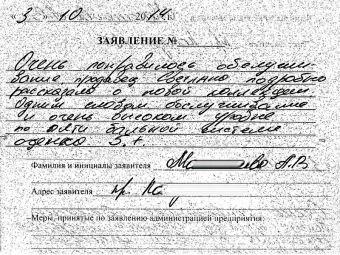 « 3 » 10 2014
ЗАЯВЛЕНИЕ №
Очень понравилось обслужи-
вание, продавец Светлана подробно
рассказала о новой коллекции.
Одним словом обслуживание
на очень высоком уровне
по пяти бальной системе
оценка 5+
Фамилия и инициалы заявителя А.В
Адрес заявителя пр.
Меры, принятые по заявлению администрацией предприятия: